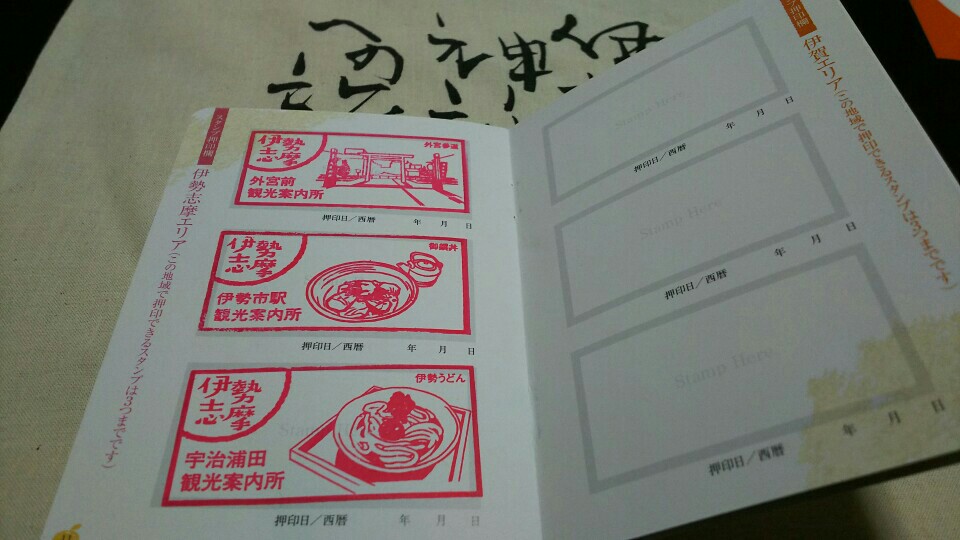 スタンプ押印欄
伊勢志摩エリア(この地域で押印できるスタンプは3つまでです)
伊勢志摩
外宮参道
外宮前
観光案内所
押印日/西暦 年 月 日
伊勢志摩
御饌丼
伊勢市駅
観光案内所
押印日/西暦 年 月 日
伊勢志摩
伊勢うどん
宇治浦田
観光案内所
押印日/西暦 年 月 日
11
押印欄
伊賀エリア(この地域で押印できるスタンプは3つまでです)
Stamp Here
押印日/西暦 年 月 日
Stamp Here
押印日/西暦 年 月 日
Stamp Here.
押印日/西暦 年 月 日